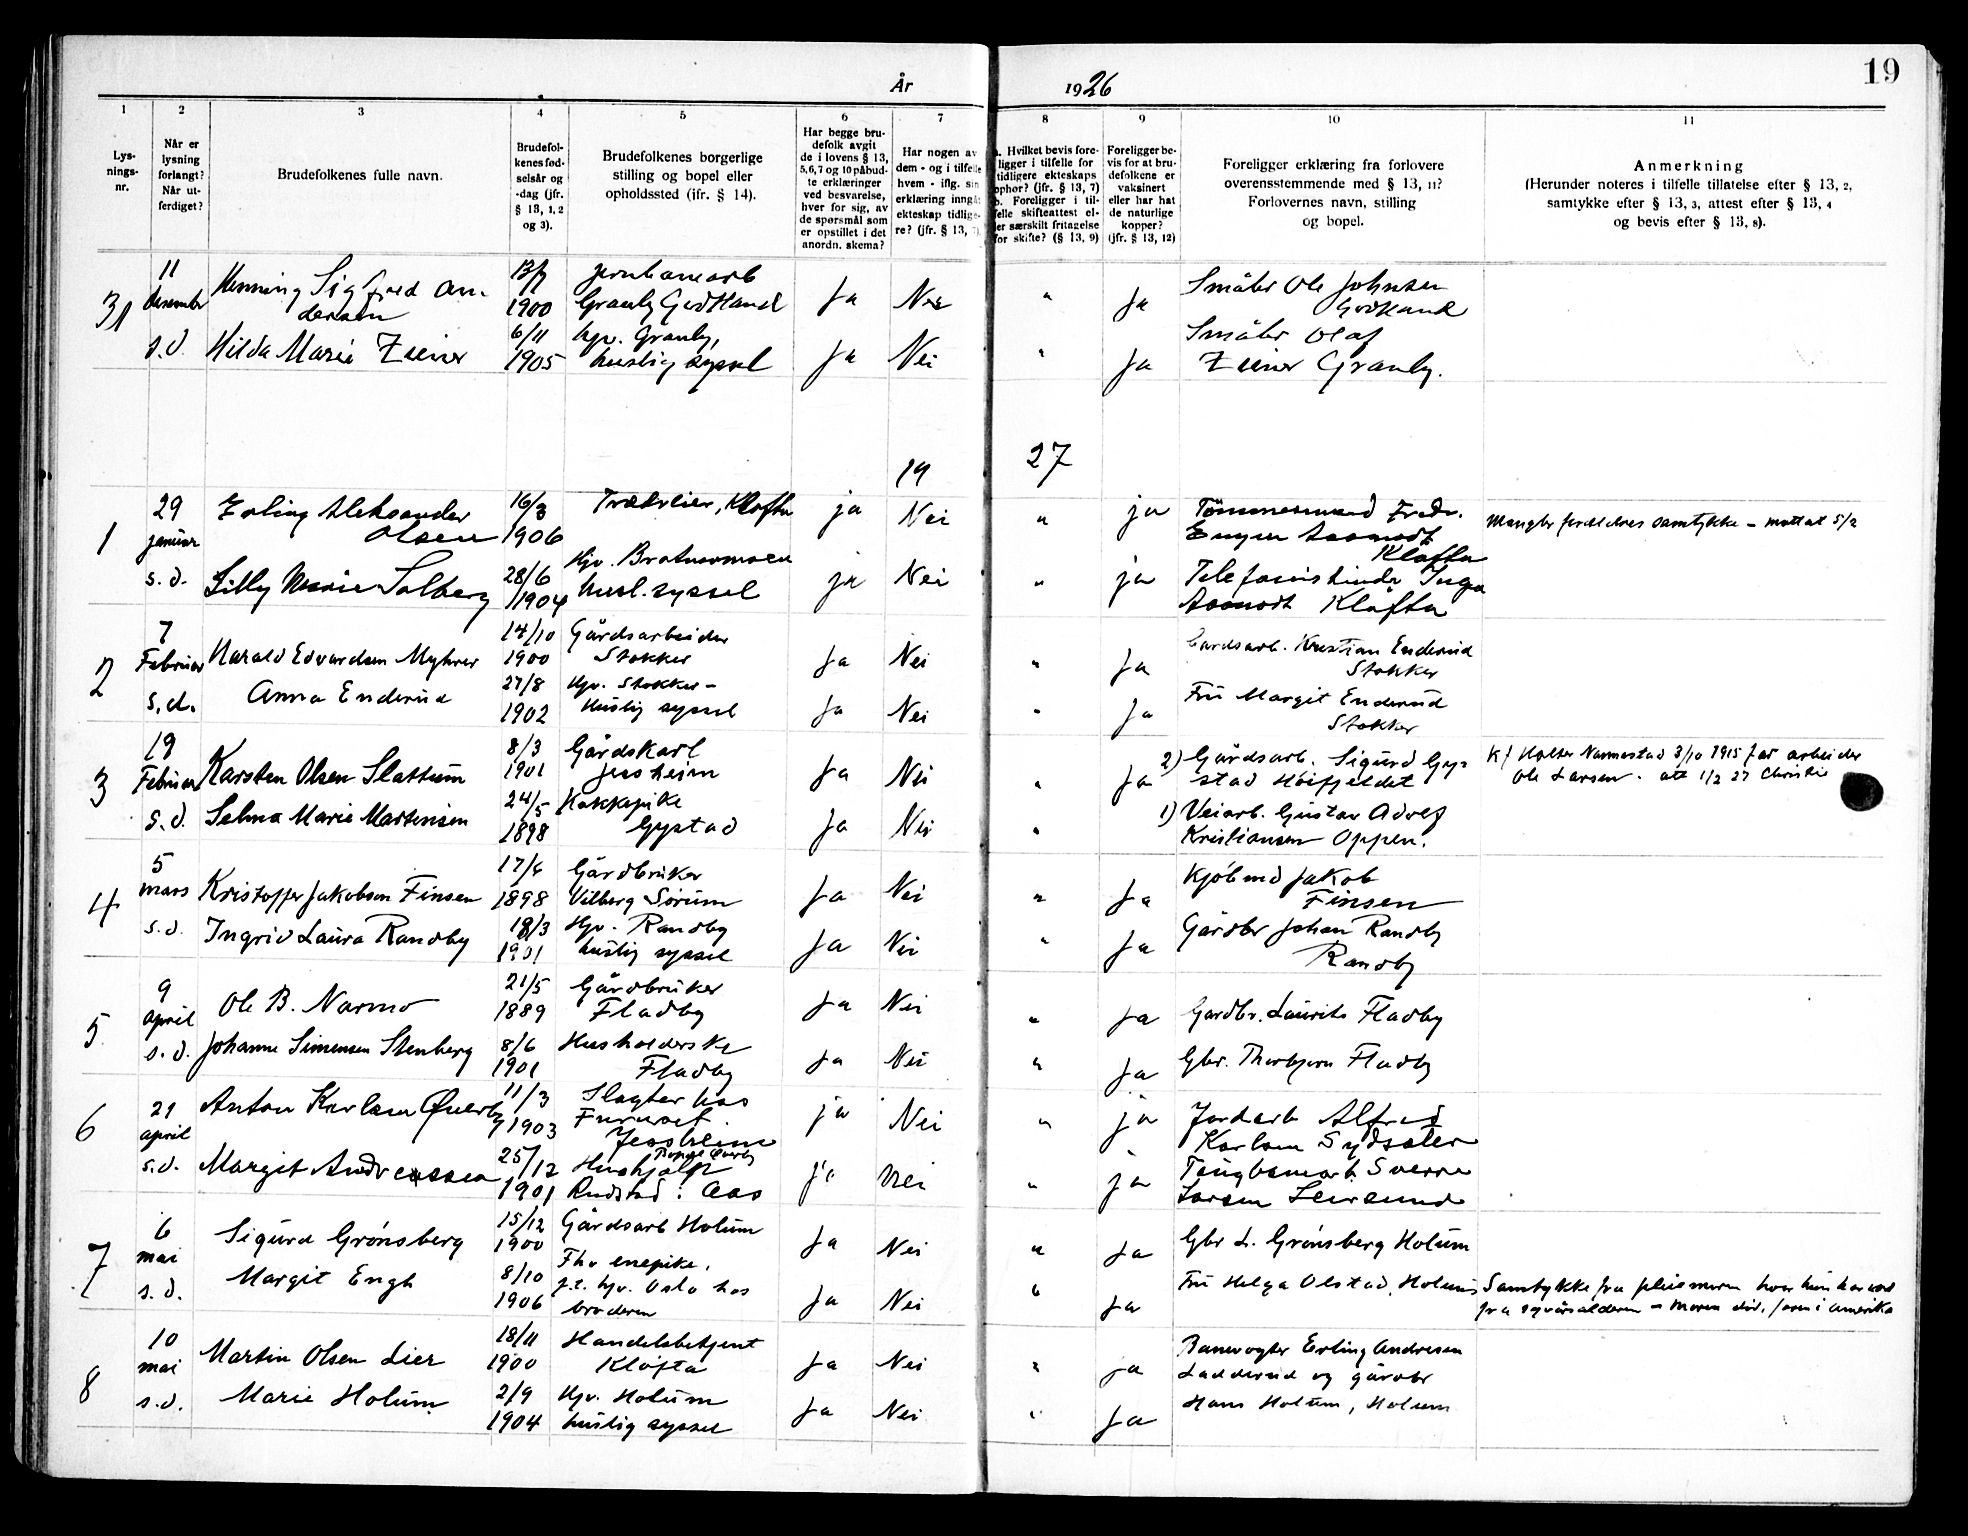 19
År 1926
1 2 3 4 5 6 7 8 9 10 11
Lys-
nings-
nr.
Når er
lysning
forlangt?
Når ut-
ferdiget?
Brudefolkenes fulle navn.
Brudefol-
kenes fød-
selsår og
-dag (jfr.
§ 13, 1, 2
og 3).
Brudefolkenes borgerlige
stilling og bopel eller
opholdssted (ifr. § 14).
Har begge bru-
defolk avgit
de i lovens § 13,
5, 6, 7 og 10 påbud-
te erklæringer
ved besvarelse,
hver for sig, av
de spørsmål som
er opstillet i det
anordn. skema?
Har nogen av
dem - og i tilfelle
hvem - iflg. sin
erklæring inngå
ekteskap tidlige-
re? (jfr. § 13, 7)
a. Hvilket bevis fore-
ligger i tilfelle for
tidligere ekteskaps
ophør? (jfr. § 13, 7)
b. Foreligger i til-
felle skifteattest el-
ler særskilt fritagelse
for skifte? (§ 13, 9)
Foreligger be-
vis for at bru-
defolkene er
vaksinert
eller har hat
de naturlige
kopper?
(jfr. § 13, 12)
Foreligger erklæring fra forlovere
overensstemmende med § 13, 11?
Forlovernes navn, stilling
og bopel.
Anmerkning
(Herunder noteres i tilfelle tillatelse efter § 13, 2,
samtykke efter § 13, 3, attest efter § 13, 4
og bevis efter § 13, 8).
31
11
desember
s.d.
Henning Sigfred An-
dersen
Hilda Marie Zeiner
1900
6/11
1905
jernbanearb
Granby
hjv. Granby,
huslig syssel
Ja Nei " Ja
Ja Nei " Ja
Småbr Ole Johnsen
Småbr Olaf
Zeiner Granby.
19 27
1
29
januar
s.d.
Erling Aleksander
Olsen
Lilly Marie Solberg
16/3
1906
28/6
1904
Kløfta
Hjv.
husl. syssel
ja Nei " ja
ja Nei " ja
Tømmermand Fredr.
Kløfta
Telefonistinde Inga
Kløfta
Mangler forældres samtykke – mottat 5/2
2
7
Februar
s.d.
Harald Edvardsen Myhrer
Anna Enderud
14/10
1900
27/8
1902
Gårdsarbeider
Stokker
Hjv. Stokker –
Huslig syssel
Ja Nei " Ja
Ja Nei " Ja
Gardsarb. Kristian Enderud
Stokker
Fru Margit Enderud
Stokker
3
19
Februar
s.d.
Karsten Olsen Slattum
Selma Marie Martinsen
8/3
1901
24/5
1898
Gårdskarl
Jessheim
Kokkepike
Gystad
Ja Nei " Ja
Ja Nei "
2) Gårdsarb. Sigurd Gy-
stad Høifjeldet
1) Veiarb. Gustav Adolf
Kristiansen Oppen.
K/ Holter Nannestad 3/10 1915 far arbeider
Ole Larsen. att 1/2 27 Christie
4
5
mars
s.d.
Kristoffer Jakobsen Finsen
Ingrid Laura Randby
17/6
1898
18/3
1901
Gårdbruker
Vilberg Sørum
Hjv. Randby
huslig syssel
Ja Nei " Ja
Ja Nei " Ja
Kjøbmd Jakob
Finsen
Gårdbr Johan Randby
Randby
5
9
april
s.d.
Ole B. Narmo
Johanne Simensen Stenberg
21/5
1889
8/6
1901
Gårdbruker
Fladby
Husholderske
Fladby
Ja Nei " Ja
Ja Nei " Ja
Gardbr. Laurits Fladby
Gbr. Thorbjørn Fladby
6
21
april
s.d.
Anton Karlsen Øverby
Margit Andreassen
11/3
1903
25/12
1901
Slagter hos
Furuset
Jessheim
Hushjælp
Rudstad i Aas
ja Nei " ja
ja Nei " ja
Jordarb Alfred
Karlsen
Sverre
Larsen Leirsund
7
6
mai
s.d.
Sigurd Grønsberg
Margit Engh
15/12
1900
8/10
1906
Gårdsarb Holum
p.t. hjv. Oslo hos
broderen
Ja Nei " Ja
Ja Nei " Ja
Gbr L. Grønsberg Holum
Fru Helga Olstad, Holum
Samtykke fra pleismoren hvor hun har vært
fra syvårsalderen – Moren død, faren i Amerika
8
10
mai
s.d.
Martin Olsen Lier
Marie Holum
18/11
1900
2/9
1904
Handelsbetjent
Kløfta
Hjv. Holum
huslig syssel
Ja Nei " Ja
Ja Nei " Ja
Banevogter Erling Andresen
Ladderud og gårdbr
Hans Holum, Holum